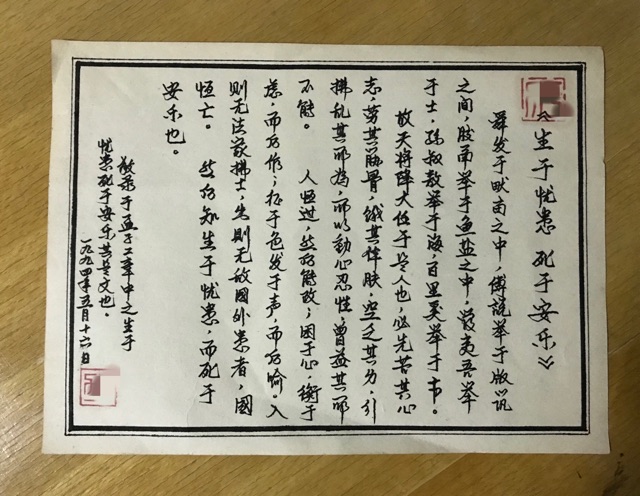 《生于忧患 死于安乐》
舜发于畎亩之中，傅说举于版筑
之间，胶鬲举于鱼盐之中，管夷吾举
于士，孙叔敖举于海，百里奚举于市。
故天将降大任于是人也，必先苦其心
志，劳其筋骨，饿其体肤，空乏其身，行
拂乱其所为，所以動心忍性，曾益其所
不能。 人恒过，然后能改；困于心，衡于
虑，而后作；征于色发于声，而后喻。入
则无法家拂士，出则无敌國外患者，國
恒亡。 然后知生于忧患，而死于
安乐也。
敬录于孟子二章中之生于
忧患死于安乐其文也。
一九九四年五月十六日